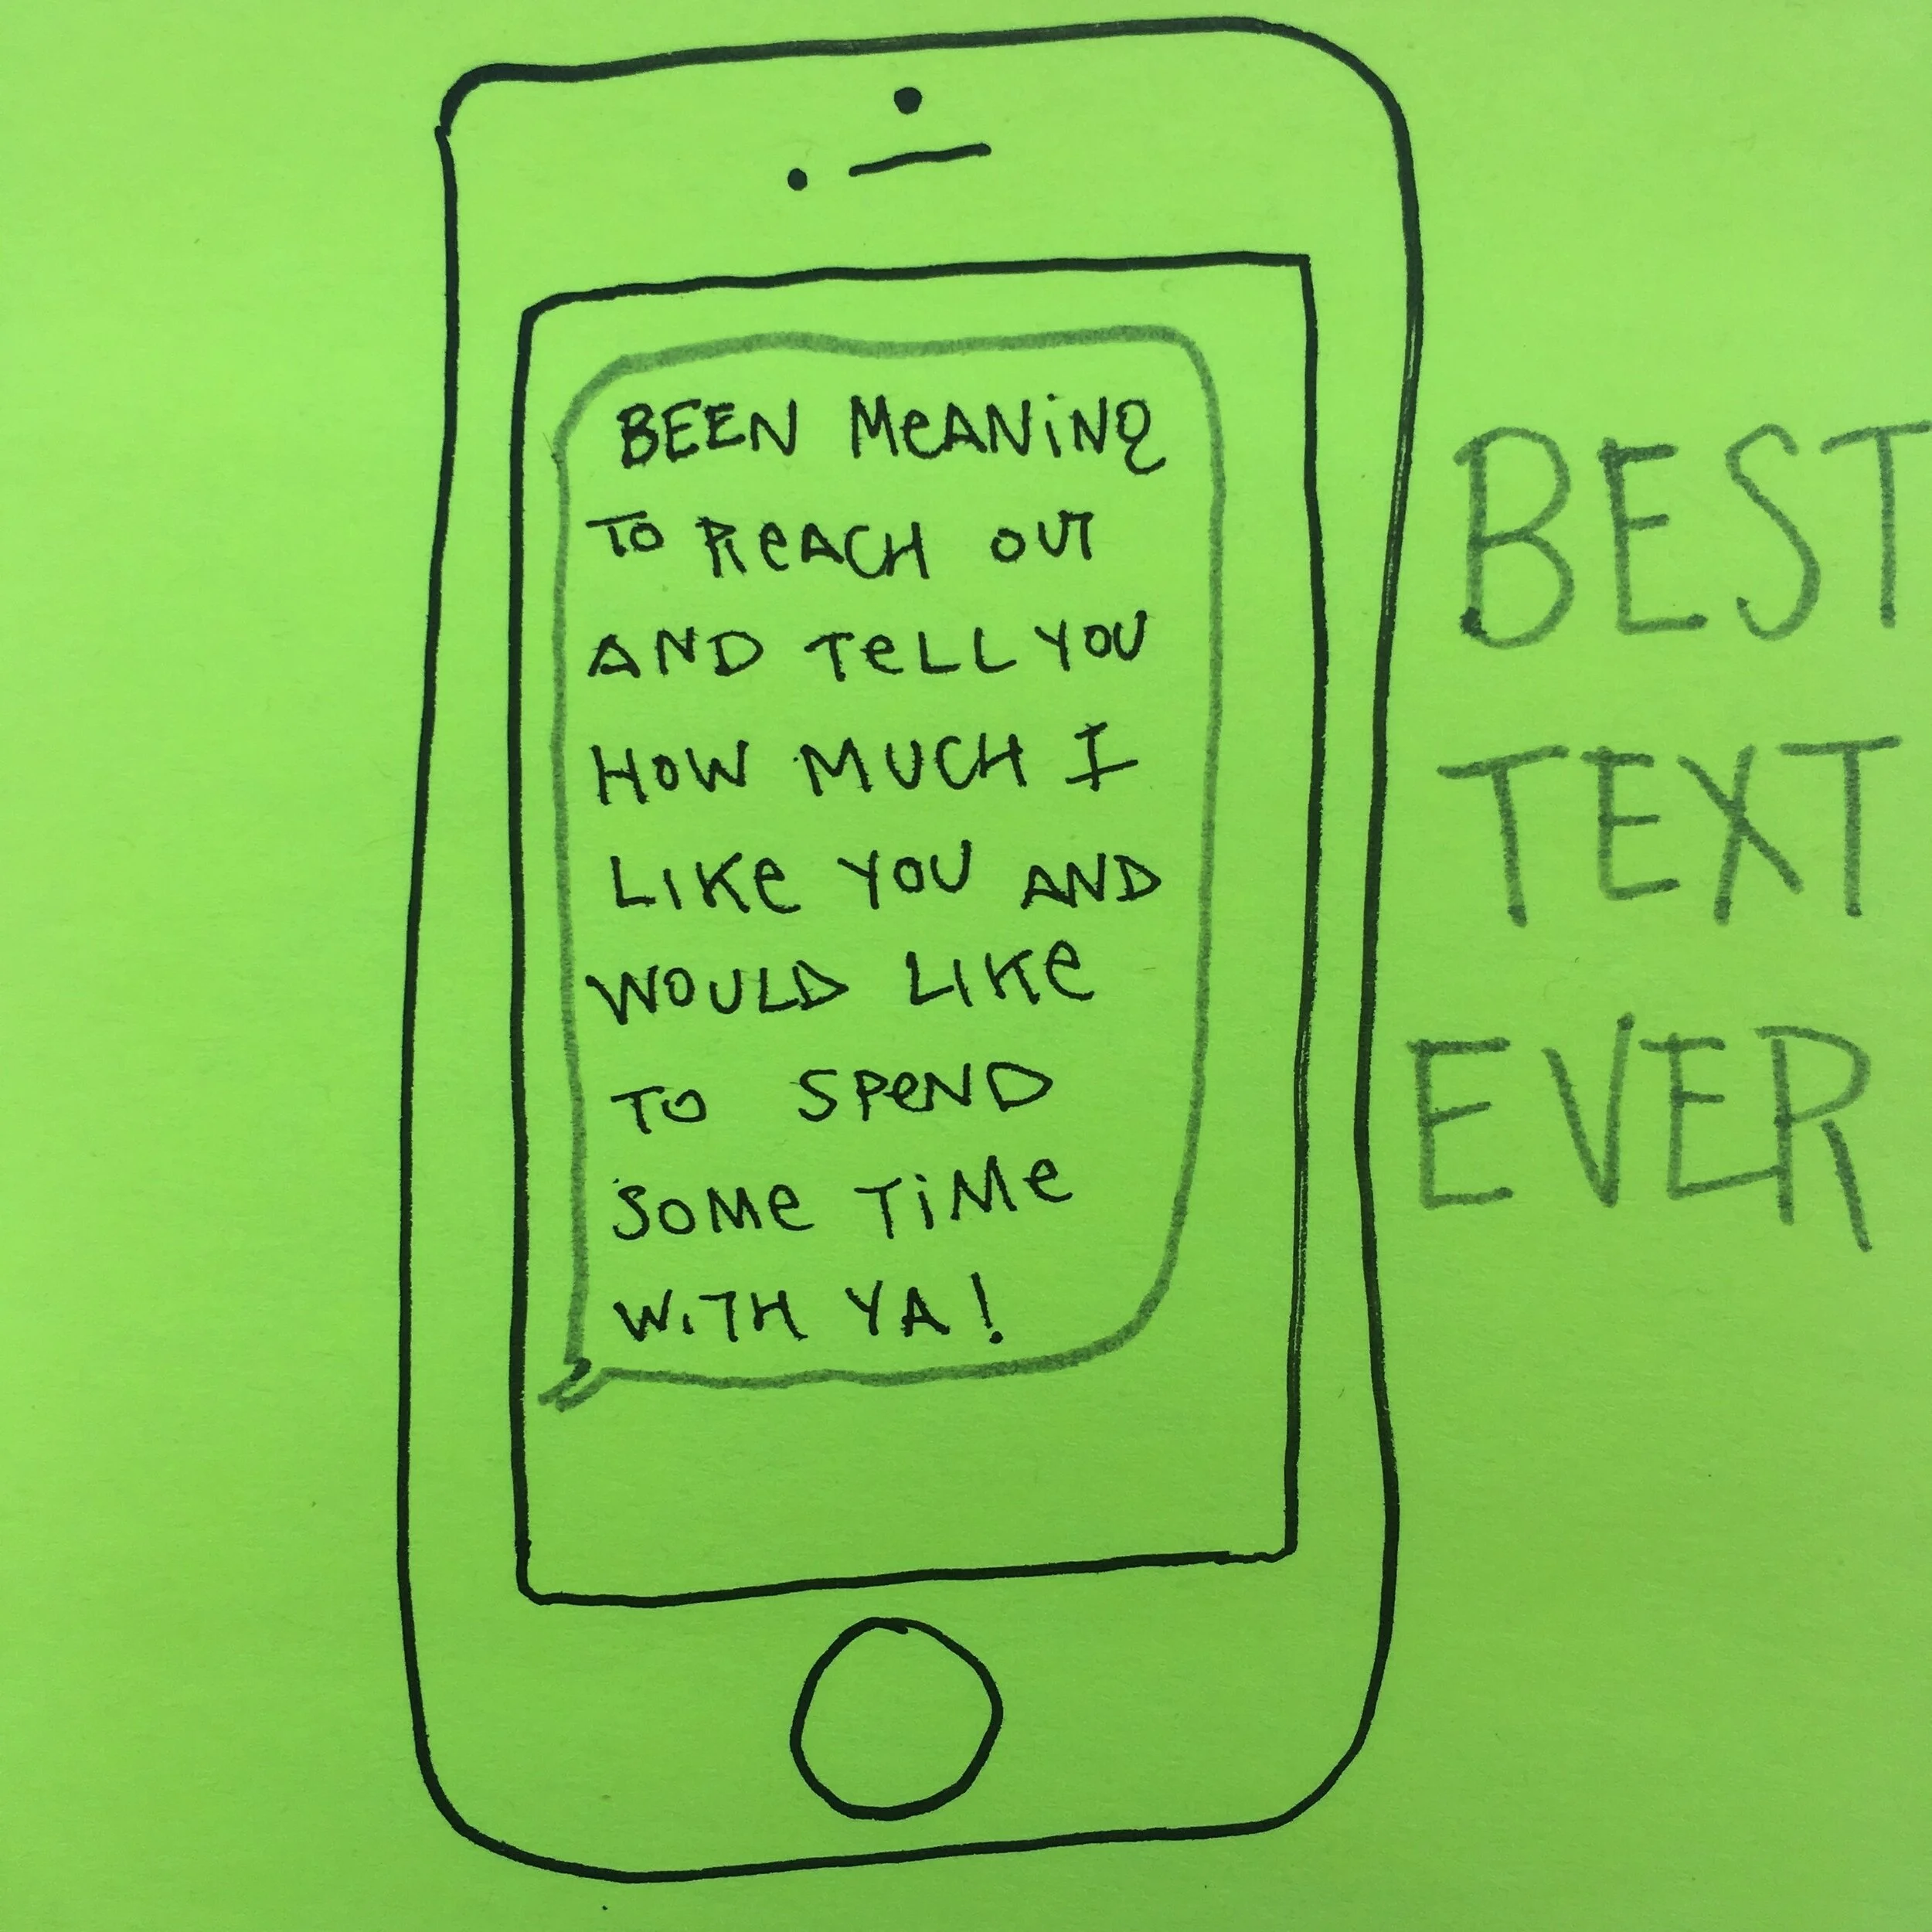 BEEN MEANING
TO REACH OUT
AND TELL YOU
HOW MUCH I
LIKE YOU AND
WOULD LIKE
TO SPEND
SOME TIME
WITH YA!
BEST
TEXT
EVER